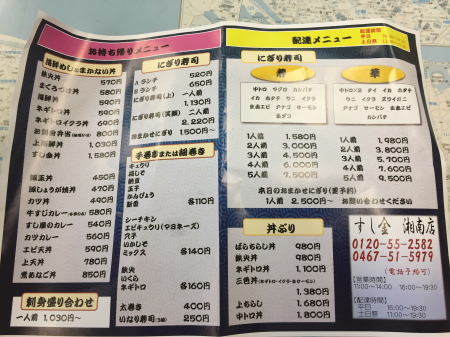 お持ち帰りメニュー
海鮮めし&まかない丼
鉄火丼 570円
まぐろづけ丼 580円
海鮮丼 590円
ネギトロ丼 590円
ネギトロイクラ丼 690円
お刺身弁当 800円
上海鮮丼 1,030円
すし金丼 1,030円
豚玉丼 450円
豚しょうが焼丼 470円
カツ丼 490円
牛すじカレー 580円
すし屋のカレー 540円
カツカレー 560円
エビ天丼 590円
上天丼 780円
煮あなご丼 850円
刺身盛り合わせ
一人前 1,030円~
にぎり寿司
A ランチ 520円
B ランチ 650円
にぎり寿司(上) 一人前
1,130円
にぎり寿司(笑顔) 二人前
2,220円
おまかせにぎり 1,500円~
手巻きまたは細巻き
キュウリ
梅しそ
納豆
玉子
かんぴょう
新香 各110円
シーチキン
エビキュウリ(マヨネーズ)
穴子
いかしそ
ミックス 各140円
鉄火
いくら
ネギトロ 各160円
太巻き 400円
いなり寿司 250円
配達メニュー
配達時間
平日 16:00~19:30
土日祭 11:00~19:30
にぎり寿司
寿
中トロ マグロ カンパチ
イカ ホタテ ウニ イクラ
生赤エビ アナゴ サーモン
玉子
1人前 1,580円
2人前 3,000円
3人前 4,500円
4人前 6,000円
5人前 7,500円
華
中トロ×2 タイ イカ ホタテ
ウニ イクラ ズワイガニ
カンパチ サーモン 生赤エビ
アナゴ
1人前 1,980円
2人前 3,800円
3人前 5,700円
4人前 7,600円
5人前 9,500円
本日のおまかせにぎり(要予約)
1人前 2,500円~ お問い合わせください
丼ぶり
ばらちらし丼 980円
鉄火丼 980円
ネギトロ丼 1,100円
三色丼
(ネギトロ・イクラ・生サーモン)
1,380円
上ちらし 1,680円
中トロ丼 1,800円
すし金 湘南店
0120-55-2582
0467-51-5979
(電話予約可)
【営業時間】
11:00~14:00 16:00~19:30
【配達時間】
平日 16:00~19:30
土日祭 11:00~19:30